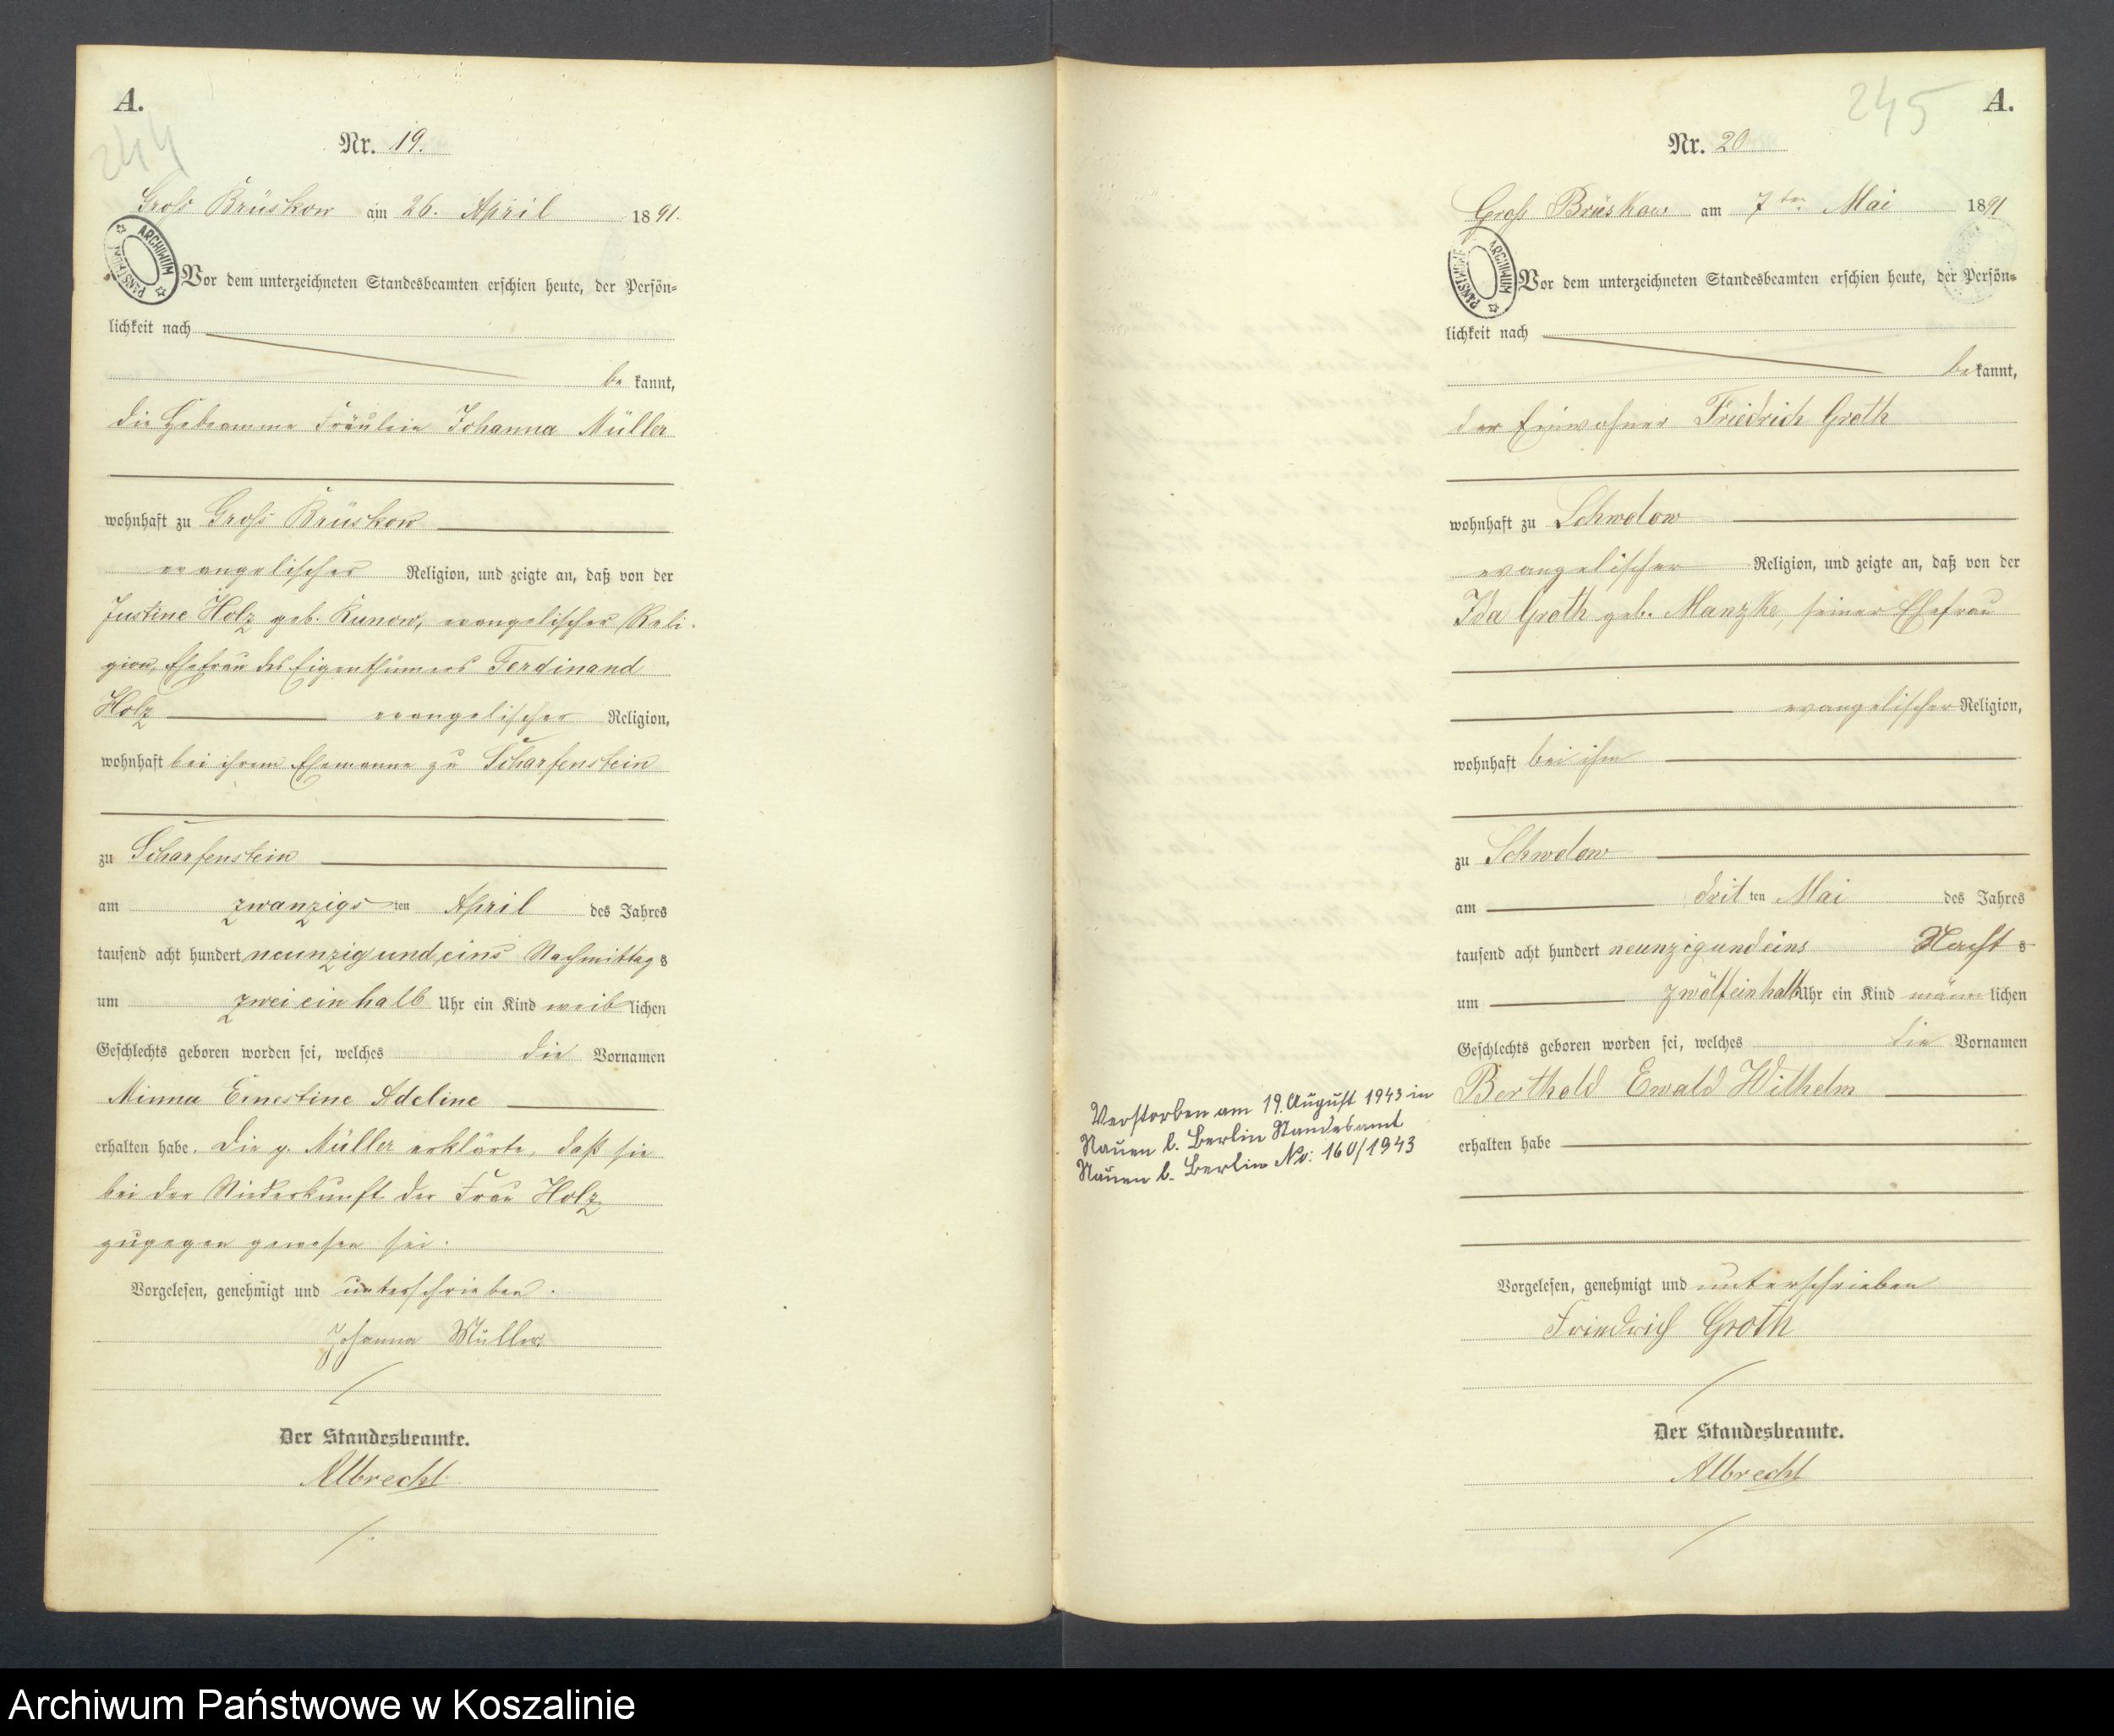 A.
244
Nr. 19.
Gross Brüskow am 26. April 1891.
ARCHIWUM PAŃSTWOWE
Vor dem unterzeichneten Standesbeamten erschien heute, der Persön-
lichkeit nach
be kannt,
die Hebeamme Fräulein Johanna Müller
wohnhaft zu Gross Brüskow
evangelischer Religion, und zeigte an, daß von der
Justine Holz geb. Kunow, evangelischer Reli-
gion, Ehefrau des Eigenthümers Ferdinand
Holz evangelischer Religion,
wohnhaft bei ihrem Ehemanne zu Scharfenstein
zu Scharfenstein
am zwanzigsten April des Jahres
tausend acht hundert neunzig und eins Nachmittags
um zwei ein halb Uhr ein Kind weiblichen
Geschlechts geboren worden sei, welches die Vornamen
Minna Ernestine Adeline
erhalten habe. Die p. Müller erklärte, daß sie
bei der Niederkunft der Frau Holz
zugegen gewesen sei.
Vorgelesen, genehmigt und unterschrieben.
Johanna Müller
Der Standesbeamte.
Albrecht
A.
245
Nr. 20
Gross Brüskow am 7ten Mai 1891
ARCHIWUM PAŃSTWOWE
Vor dem unterzeichneten Standesbeamten erschien heute, der Persön-
lichkeit nach
bekannt,
der Einwohner Friedrich Groth
wohnhaft zu Schwolow
evangelischer Religion, und zeigte an, daß von der
Ida Groth geb. Manzke, seiner Ehefrau
evangelischer Religion,
wohnhaft bei ihm
zu Schwolow
am dritten Mai des Jahres
tausend acht hundert neunzigundeins Nachts
um zwölfeinhalb Uhr ein Kind männlichen
Geschlechts geboren worden sei, welches die Vornamen
Berthold Ewald Wilhelm
erhalten habe
Vorgelesen, genehmigt und unterschrieben
Friedrich Groth
Der Standesbeamte.
Albrecht
Verstorben am 19. August 1943 in
Nauen b. Berlin Standesamt
Nauen b. Berlin No: 160/1943
Archiwum Państwowe w Koszalinie